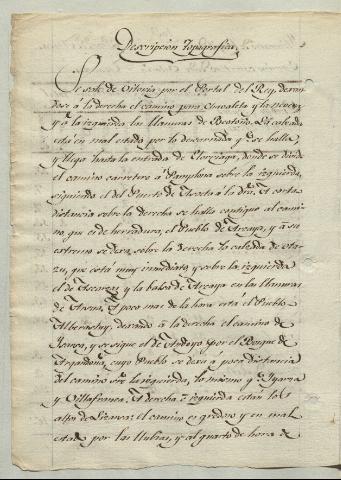 Descripcion Topografica
Se sale de Vitoria por el Portal del Rey, dexan
dose á la derecha el camino para
y á la izquierda las llanuras de Betoño. La calzada
está en mal estado por lo descarnada qe. se halla,
y llega hasta la entrada de Elorriaga, donde se divide
el camino carretero á Pamplona sobre la izquierda,
siguiendo el del Puerto de á la dra. A corta
distancia sobre la derecha se halla contiguo al cami
no, que es de herradura, el Pueblo de Arcaya, y á su
extremo se dexa sobre la derecha la calzda de Ota
zu, que está muy inmediato, y sobre la izquierda
el de Ascarza y la balsa de Arcaya en las llanuras
de A poco mas de la hora está el Pueblo
Alberastury, dexando á la derecha el camino de
y se sigue el de Andoyo por el Bosque de
Argandoña, cuyo Pueblo se dexa á poca distancia
del camino sre. la izquierda, lo mismo qe.
y Villafranca. A derecha é izquierda están los
altos de el camino es gredoso y en mal
estado por las llubias, y al quarto de hora de